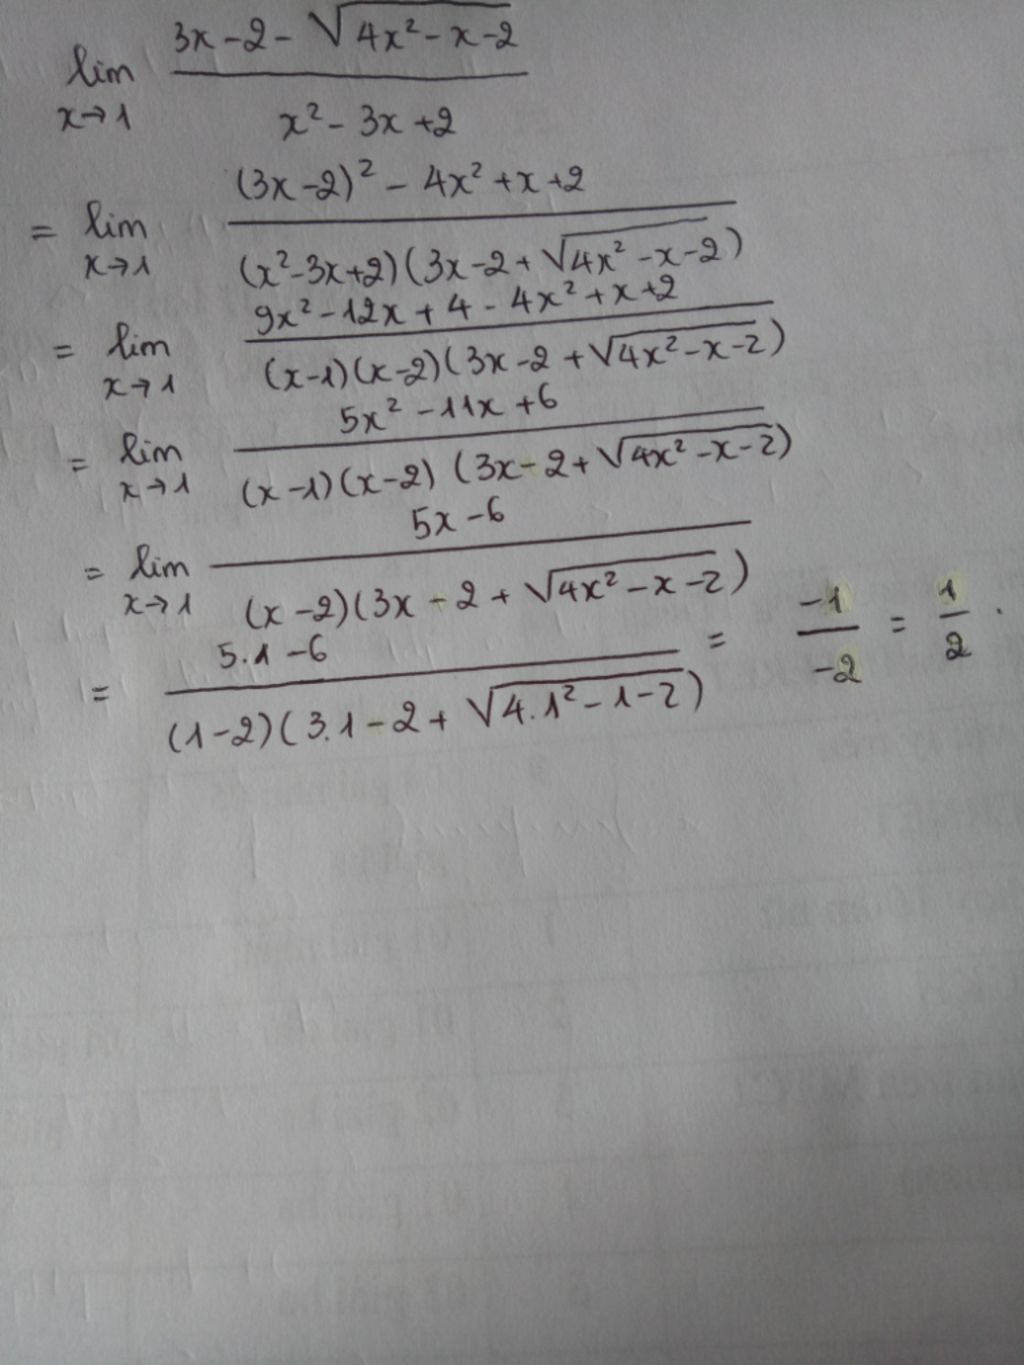 lim 3x-2-√(4x²-x-2)
x→1 x²-3x+2
= lim (3x-2)²-4x²+x+2
x→1 (x²-3x+2)(3x-2+√(4x²-x-2))
= lim 9x²-12x+4-4x²+x+2
x→1 (x-1)(x-2)(3x-2+√(4x²-x-2))
= lim 5x²-11x+6
x→1 (x-1)(x-2)(3x-2+√(4x²-x-2))
= lim 5x-6
x→1 (x-2)(3x-2+√(4x²-x-2))
= 5.1-6 / (1-2)(3.1-2+√(4.1²-1-2)) = -1/-2 = 1/2.